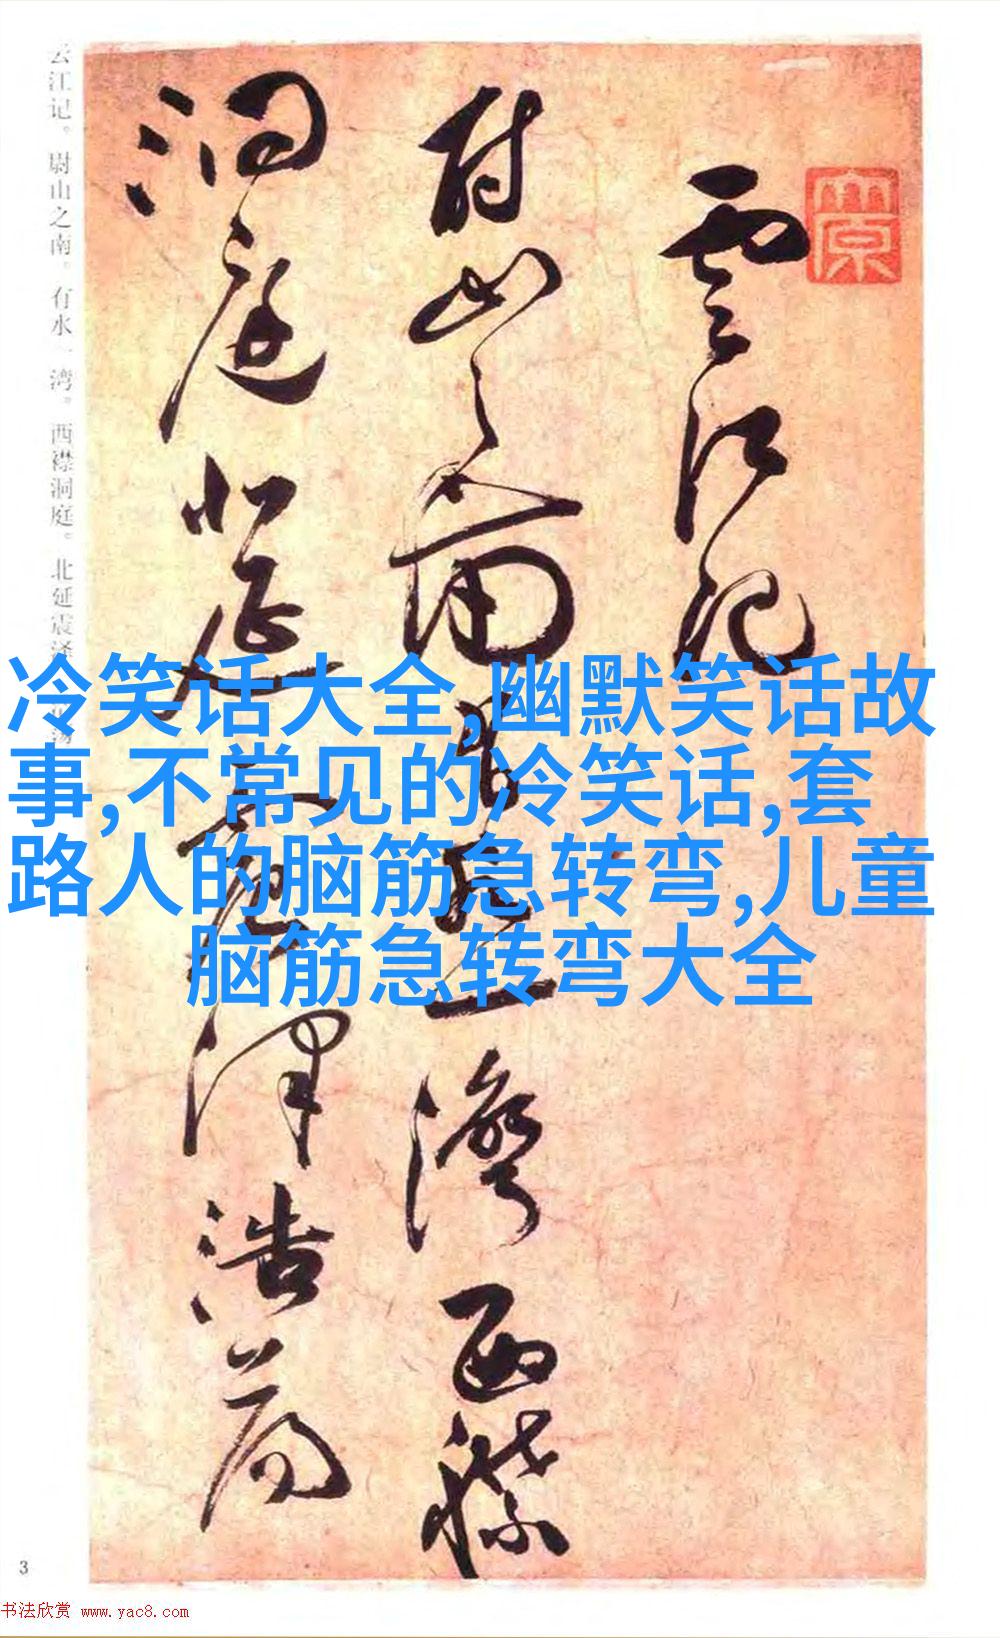 雲江記
尉山之南有水一灣西襟
洞庭北延震澤浩蕩
云江记。尉山之南。有水一湾。西襟洞庭。北延震泽
荡
冷笑话大全,幽默笑话故
事,不常见的冷笑话,套
路人的脑筋急转弯,儿童
脑筋急转弯大全
3
书法欣赏 www.yac8.com